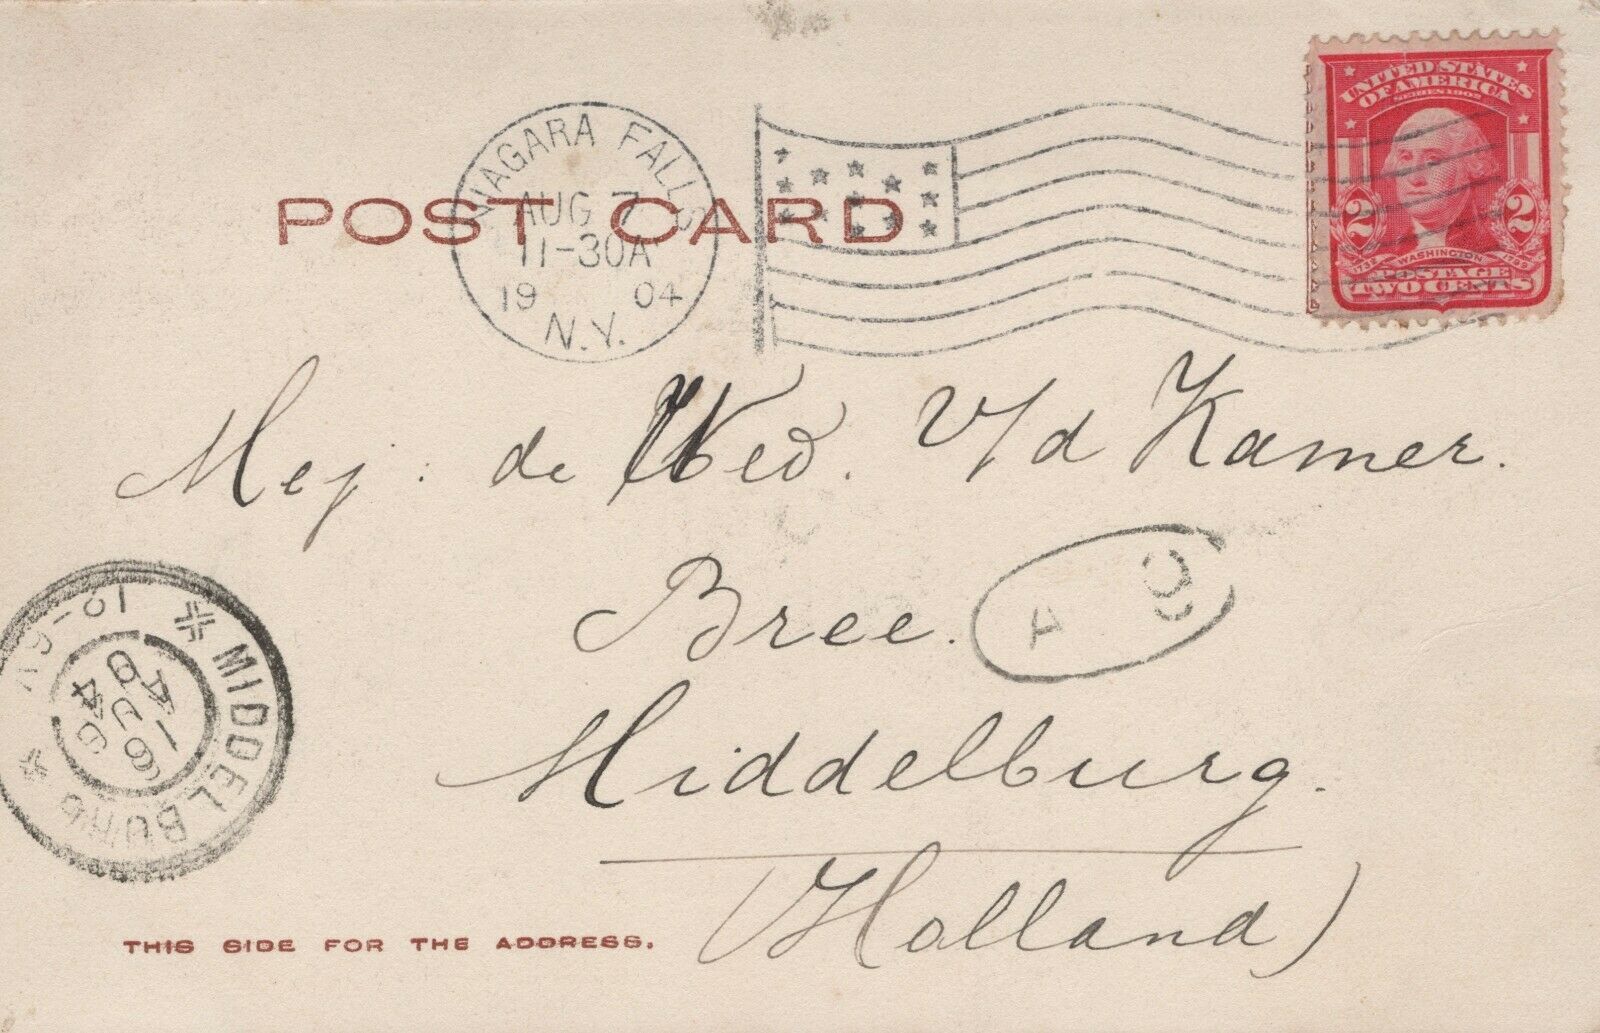 UNITED STATES
OF AMERICA
SERIES 1902
2 2
1732 WASHINGTON 1799
POSTAGE
TWO CENTS
NIAGARA FALLS
AUG 7
11-30A
19 04
N.Y.
POST CARD
Mej: de Wed. v/d Kamer.
Bree.
4
Middelburg.
(Holland)
MIDDELBURG
12-6V
16
AUG
04
THIS SIDE FOR THE ADDRESS.